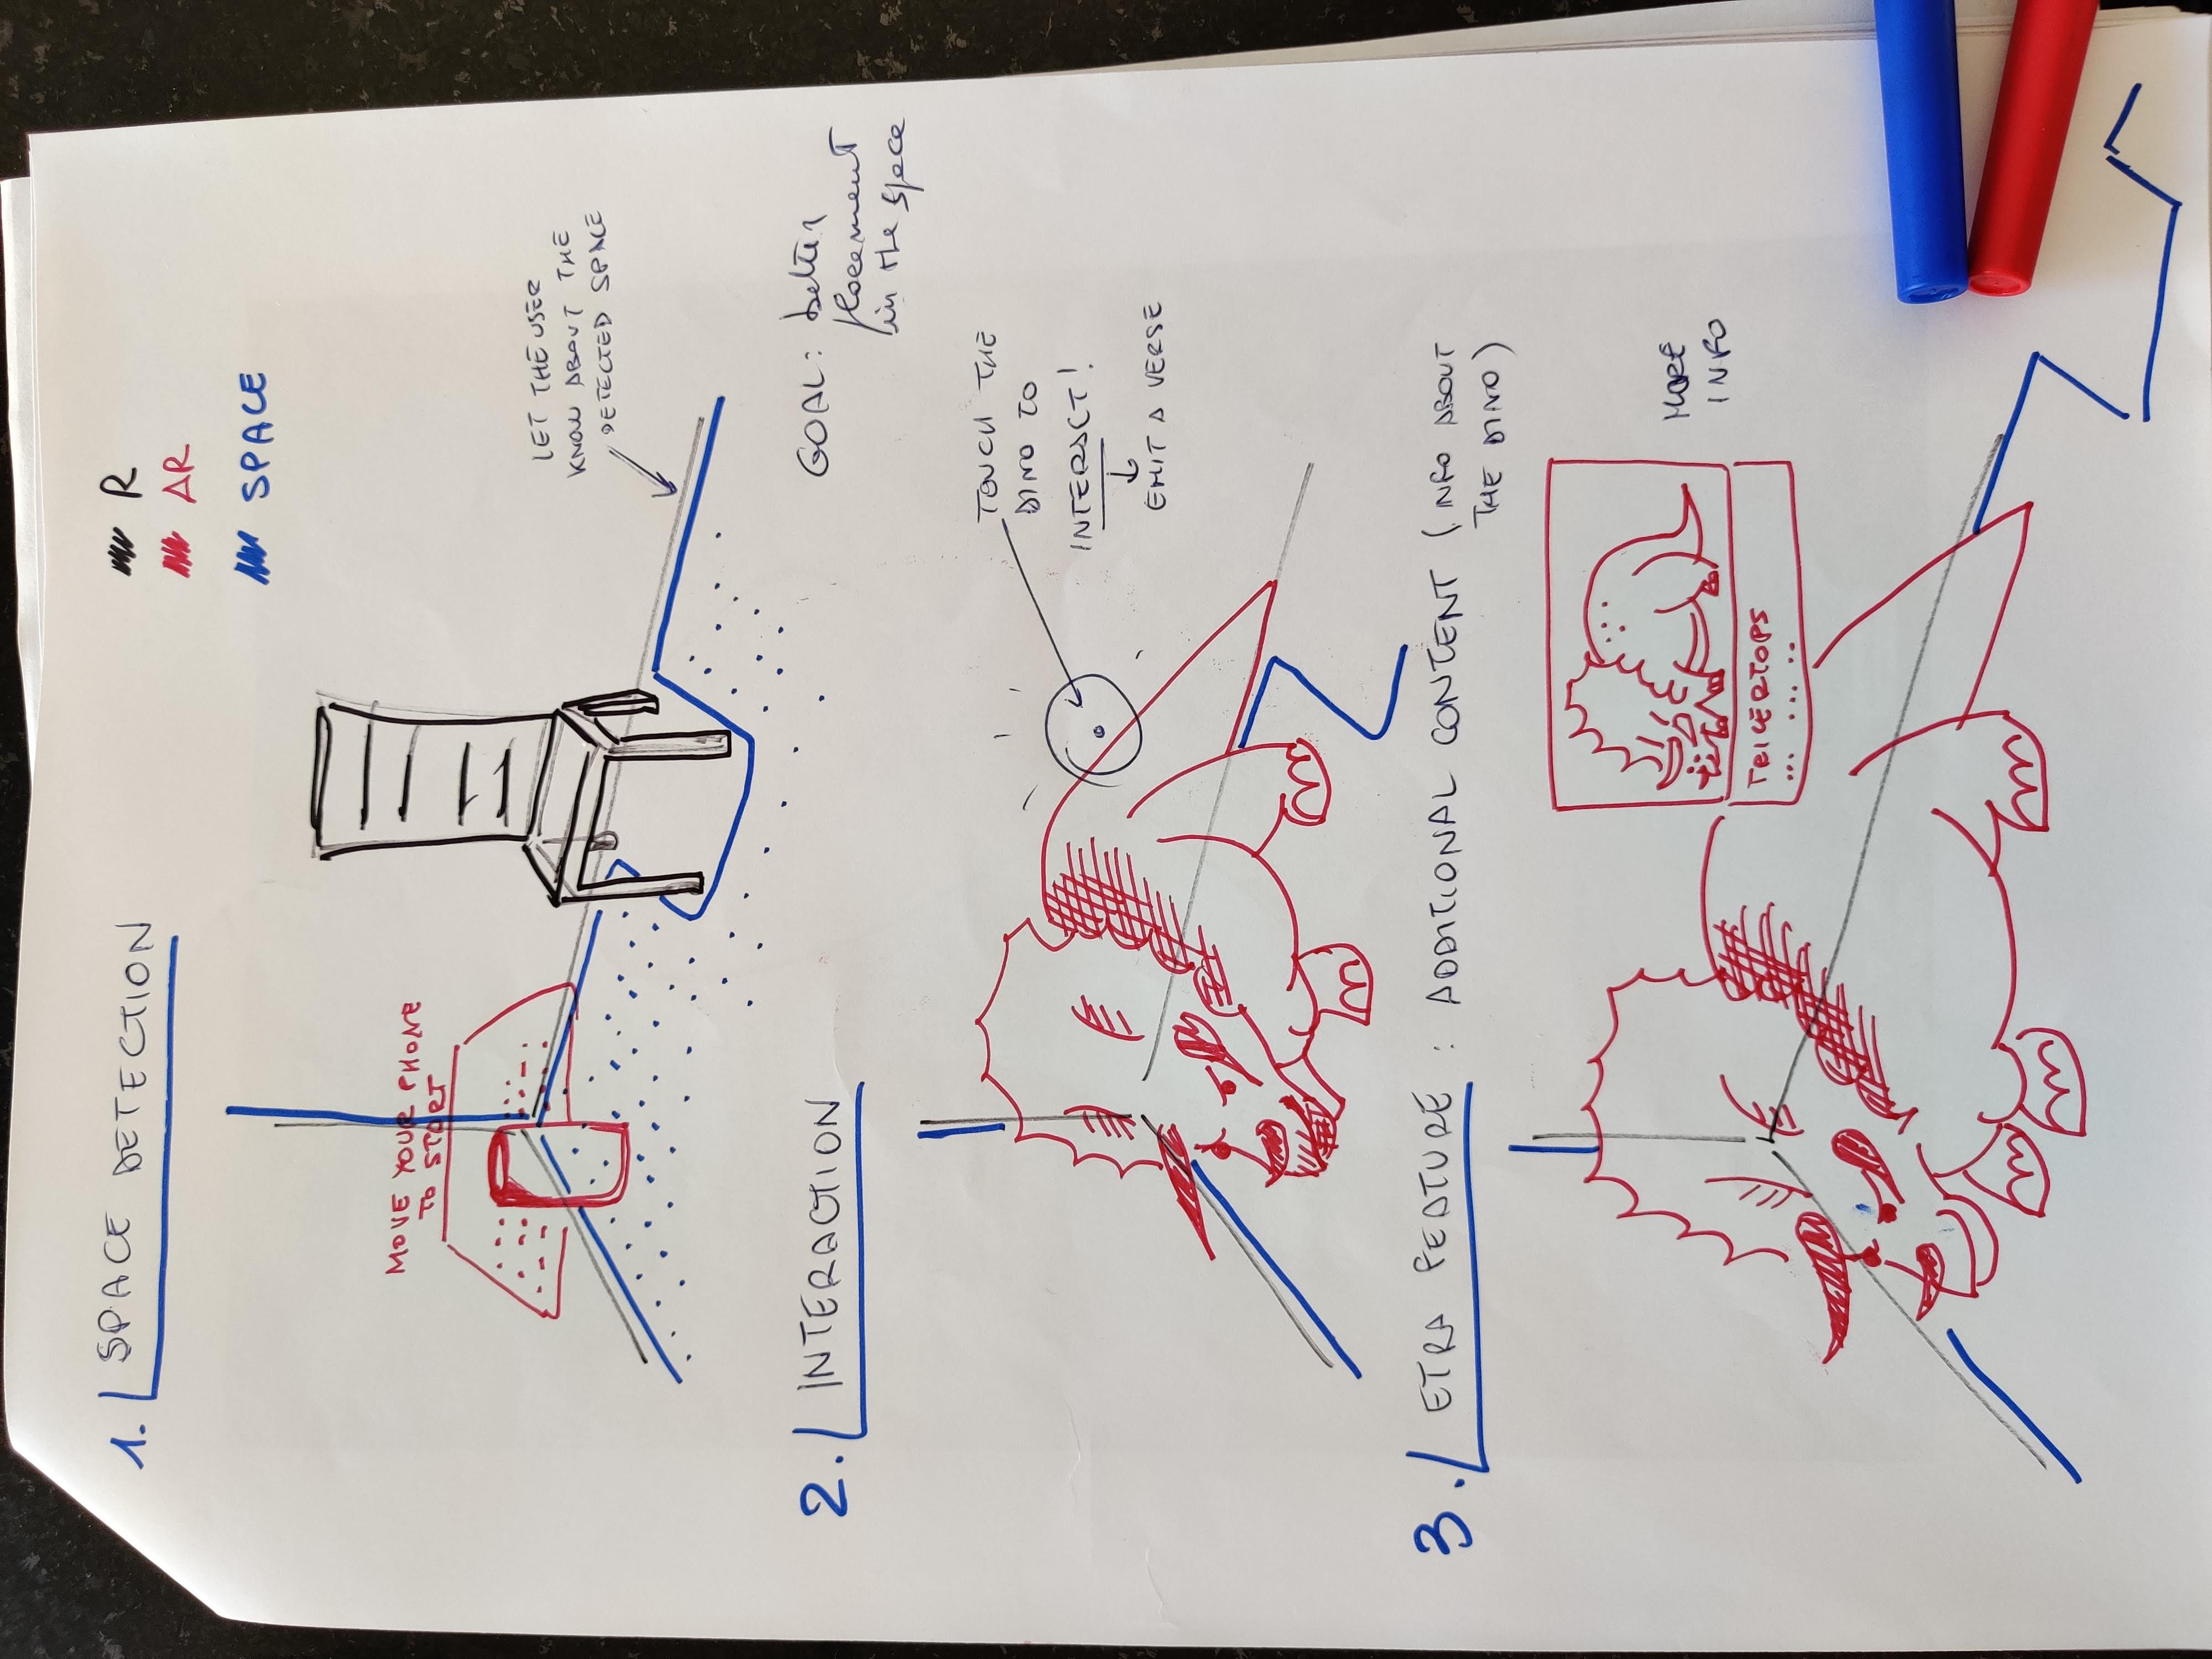 1. SPACE DETECTION
R
AR
SPACE
MOVE YOUR PHONE
TO START
LET THE USER
KNOW ABOUT THE
DETECTED SPACE
2. INTERACTION
GOAL: better
placement
in the space
TOUCH THE
DINO TO
INTERACT!
EMIT A VERSE
3. ETRA FEATURE : ADDITIONAL CONTENT (INFO ABOUT
THE DINO)
MORE
INFO
TRICERTOPS
... ... ..